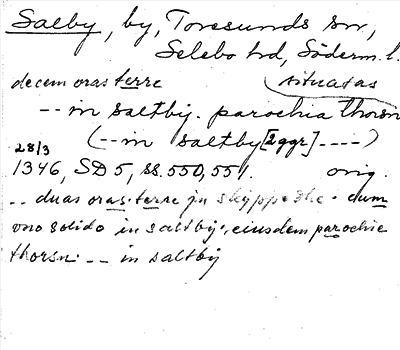 Salby, by, Toresunds sn,
Selebo hd, Söderm. l.
decem oras terre situatas
-- in saltbij. parochia thorsn
(-- in saltby [2 ggr] ----)
28/3
1346, SD 5, ss. 550, 551. orig.
-- duas oras terre jn skippasthe. cum
vno solido in saltby, eiusdem parochie
thorsn. -- in saltby